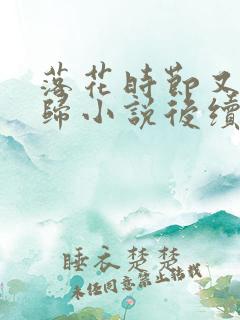 落花時節又
歸小說後續
睡衣楚楚
未經同意禁止轉載